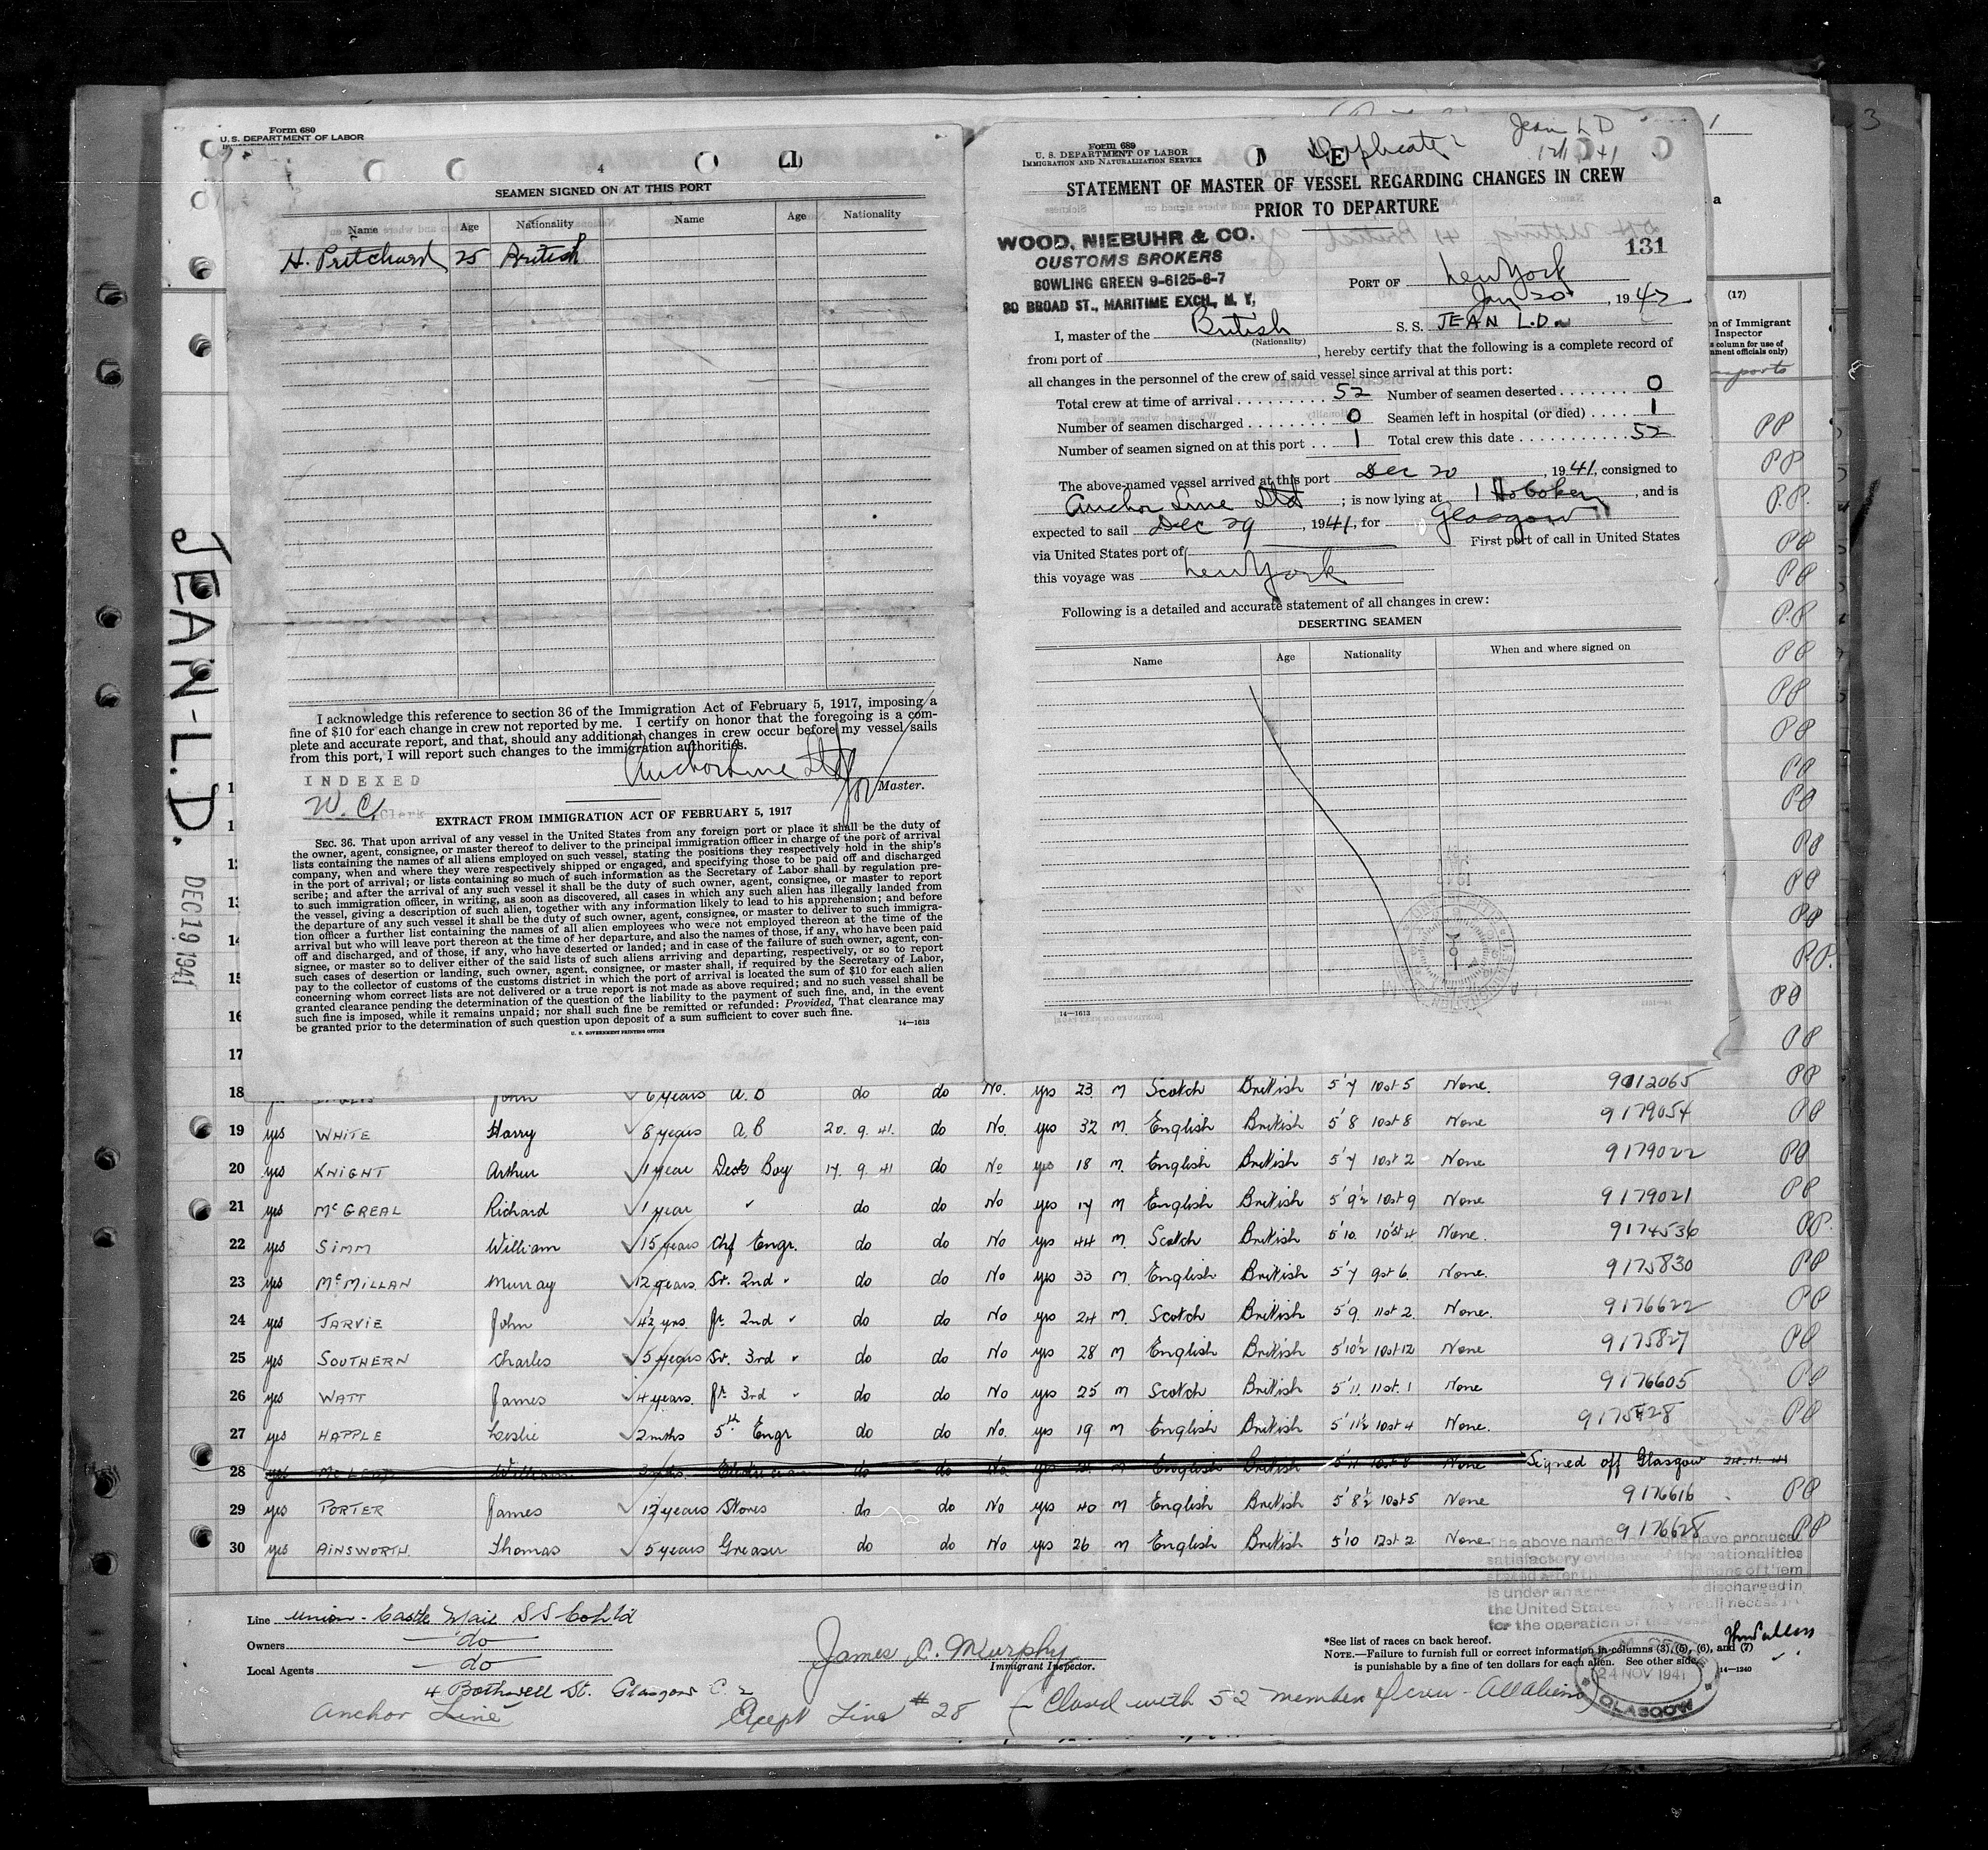 Form 680
U. S. DEPARTMENT OF LABOR
4
SEAMEN SIGNED ON AT THIS PORT
Name Age Nationality Name Age Nationality
H. Pritchard 25 British
I acknowledge this reference to section 36 of the Immigration Act of February 5, 1917, imposing a
fine of $10 for each change in crew not reported by me. I certify on honor that the foregoing is a com-
plete and accurate report, and that, should any additional changes in crew occur before my vessel sails
from this port, I will report such changes to the immigration authorities.
Anchor Line Ltd
INDEXED
Master.
W. C. Clerk
EXTRACT FROM IMMIGRATION ACT OF FEBRUARY 5, 1917
SEC. 36. That upon arrival of any vessel in the United States from any foreign port or place it shall be the duty of
the owner, agent, consignee, or master thereof to deliver to the principal immigration officer in charge of the port of arrival
lists containing the names of all aliens employed on such vessel, stating the positions they respectively hold in the ship's
company, when and where they were respectively shipped or engaged, and specifying those to be paid off and discharged
in the port of arrival; or lists containing so much of such information as the Secretary of Labor shall by regulation pre-
scribe; and after the arrival of any such vessel it shall be the duty of such owner, agent, consignee, or master to report
to such immigration officer, in writing, as soon as discovered, all cases in which any such alien has illegally landed from
the vessel, giving a description of such alien, together with any information likely to lead to his apprehension; and before
the departure of any such vessel it shall be the duty of such owner, agent, consignee, or master to deliver to such immigra-
tion officer a further list containing the names of all alien employees who were not employed thereon at the time of the
arrival but who will leave port thereon at the time of her departure, and also the names of those, if any, who have been paid
off and discharged, and of those, if any, who have deserted or landed; and in case of the failure of such owner, agent, con-
signee, or master so to deliver either of the said lists of such aliens arriving and departing, respectively, or so to report
such cases of desertion or landing, such owner, agent, consignee, or master shall, if required by the Secretary of Labor,
pay to the collector of customs of the customs district in which the port of arrival is located the sum of $10 for each alien
concerning whom correct lists are not delivered or a true report is not made as above required; and no such vessel shall be
granted clearance pending the determination of the question of the liability to the payment of such fine, and, in the event
such fine is imposed, while it remains unpaid; nor shall such fine be remitted or refunded: Provided, That clearance may
be granted prior to the determination of such question upon deposit of a sum sufficient to cover such fine.
U. S. GOVERNMENT PRINTING OFFICE 14—1613
JEAN-L.D.
DEC 19 1941
Form 680
U. S. DEPARTMENT OF LABOR
IMMIGRATION AND NATURALIZATION SERVICE
Duplicate
Jean L D
STATEMENT OF MASTER OF VESSEL REGARDING CHANGES IN CREW
PRIOR TO DEPARTURE
WOOD, NIEBUHR & CO.
CUSTOMS BROKERS
BOWLING GREEN 9-6125-6-7
80 BROAD ST., MARITIME EXCH., N. Y.
131
PORT OF New York
Jan 20, 1942
I, master of the British S. S. JEAN L.D.
(Nationality)
from port of , hereby certify that the following is a complete record of
all changes in the personnel of the crew of said vessel since arrival at this port:
Total crew at time of arrival 52 Number of seamen deserted 0
Number of seamen discharged 0 Seamen left in hospital (or died) 1
Number of seamen signed on at this port 1 Total crew this date 52
The above-named vessel arrived at this port Dec 20, 1941, consigned to
Anchor Line Ltd; is now lying at 1 Hoboken, and is
expected to sail Dec 29, 1941, for Glasgow
via United States port of First port of call in United States
this voyage was New York
Following is a detailed and accurate statement of all changes in crew:
DESERTING SEAMEN
Name Age Nationality When and where signed on
14—1613
(17)
n of Immigrant
Inspector
s column for use of
nment officials only)
17
18 John 6 years A.B do do No. yes 23 m Scotch British 5'7 10st 5 None. 9012065 PP
19 yes WHITE Harry 8 years A.B 20. 9. 41. do No. yes 32 m. English British 5'8 10st 8 None 9179054 PP
20 yes KNIGHT Arthur 1 year Deck Boy 17. 9. 41 do No yes 18 m. English British 5'7 10st 2 None 9179022 PP
21 yes McGREAL Richard 1 year " do do No yes 17 m English British 5'9½ 10st 9 None 9179021 PP
22 yes SIMM William 15 years Chf Engr. do do No yes 44 m. Scotch British 5'10. 10st 4 None. 9174536 PP.
23 yes McMILLAN Murray 12 years. Sr. 2nd " do do No yes 33 m. English British 5'7 9st 6. None. 9175830 PP
24 yes JARVIE John 4½ yrs. Jr. 2nd " do do No yes 24 m. Scotch British 5'9. 11st 2. None. 9176622 PP
25 yes SOUTHERN Charles 5 years Sr. 3rd " do do No yes 28 m English British 5'10½ 10st 12 None 9175827 PP
26 yes WATT James 4 years. Jr. 3rd " do do No yes 25 m Scotch British 5'11. 11st. 1 None 9176605 PP
27 yes HAPPLE Leslie 2 mths 5th Engr do do No. yes 19 m English British 5'11½ 10st 4 None. PP
28 yes McLEOD William Electrician do do No yes m English British 5'11 10st 8 None Signed off Glasgow 24. 11. 41
29 yes PORTER James 12 years Stores do do No yes 40 m English British 5'8½ 10st 5 None 9176616 PP
30 yes AINSWORTH. Thomas 5 years Greaser do do No yes 26 m English British 5'10 12st 2 None 9176628 PP
The above named persons have produced
satisfactory evidence of the nationalities
is under an discharged in
the United States
for the operation of the vessel
Line Union-Castle Mail S S Co Ltd
Owners do
Local Agents do
4 Bothwell St. Glasgow C. 2
Anchor Line
James C. Murphy
Immigrant Inspector.
Except Line #28 (Closed with 52 members of crew - All aliens)
*See list of races on back hereof.
NOTE.—Failure to furnish full or correct information in columns (3), (5), (6), and (7)
is punishable by a fine of ten dollars for each alien. See other side.
14—1240
24 NOV 1941
GLASGOW